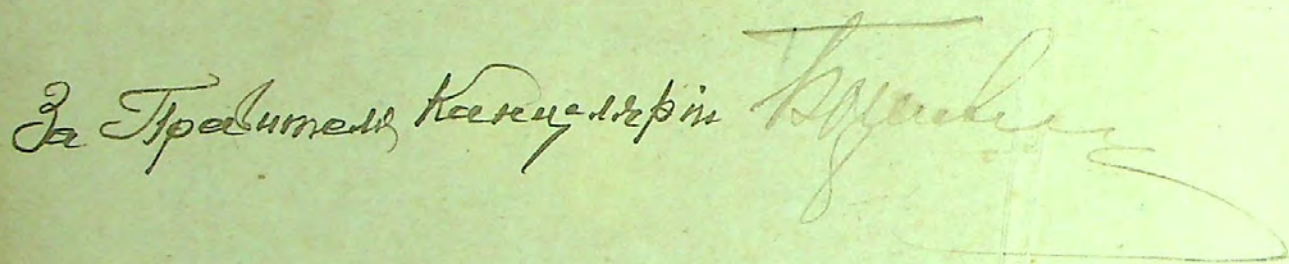 За Правителя Канцелярiи